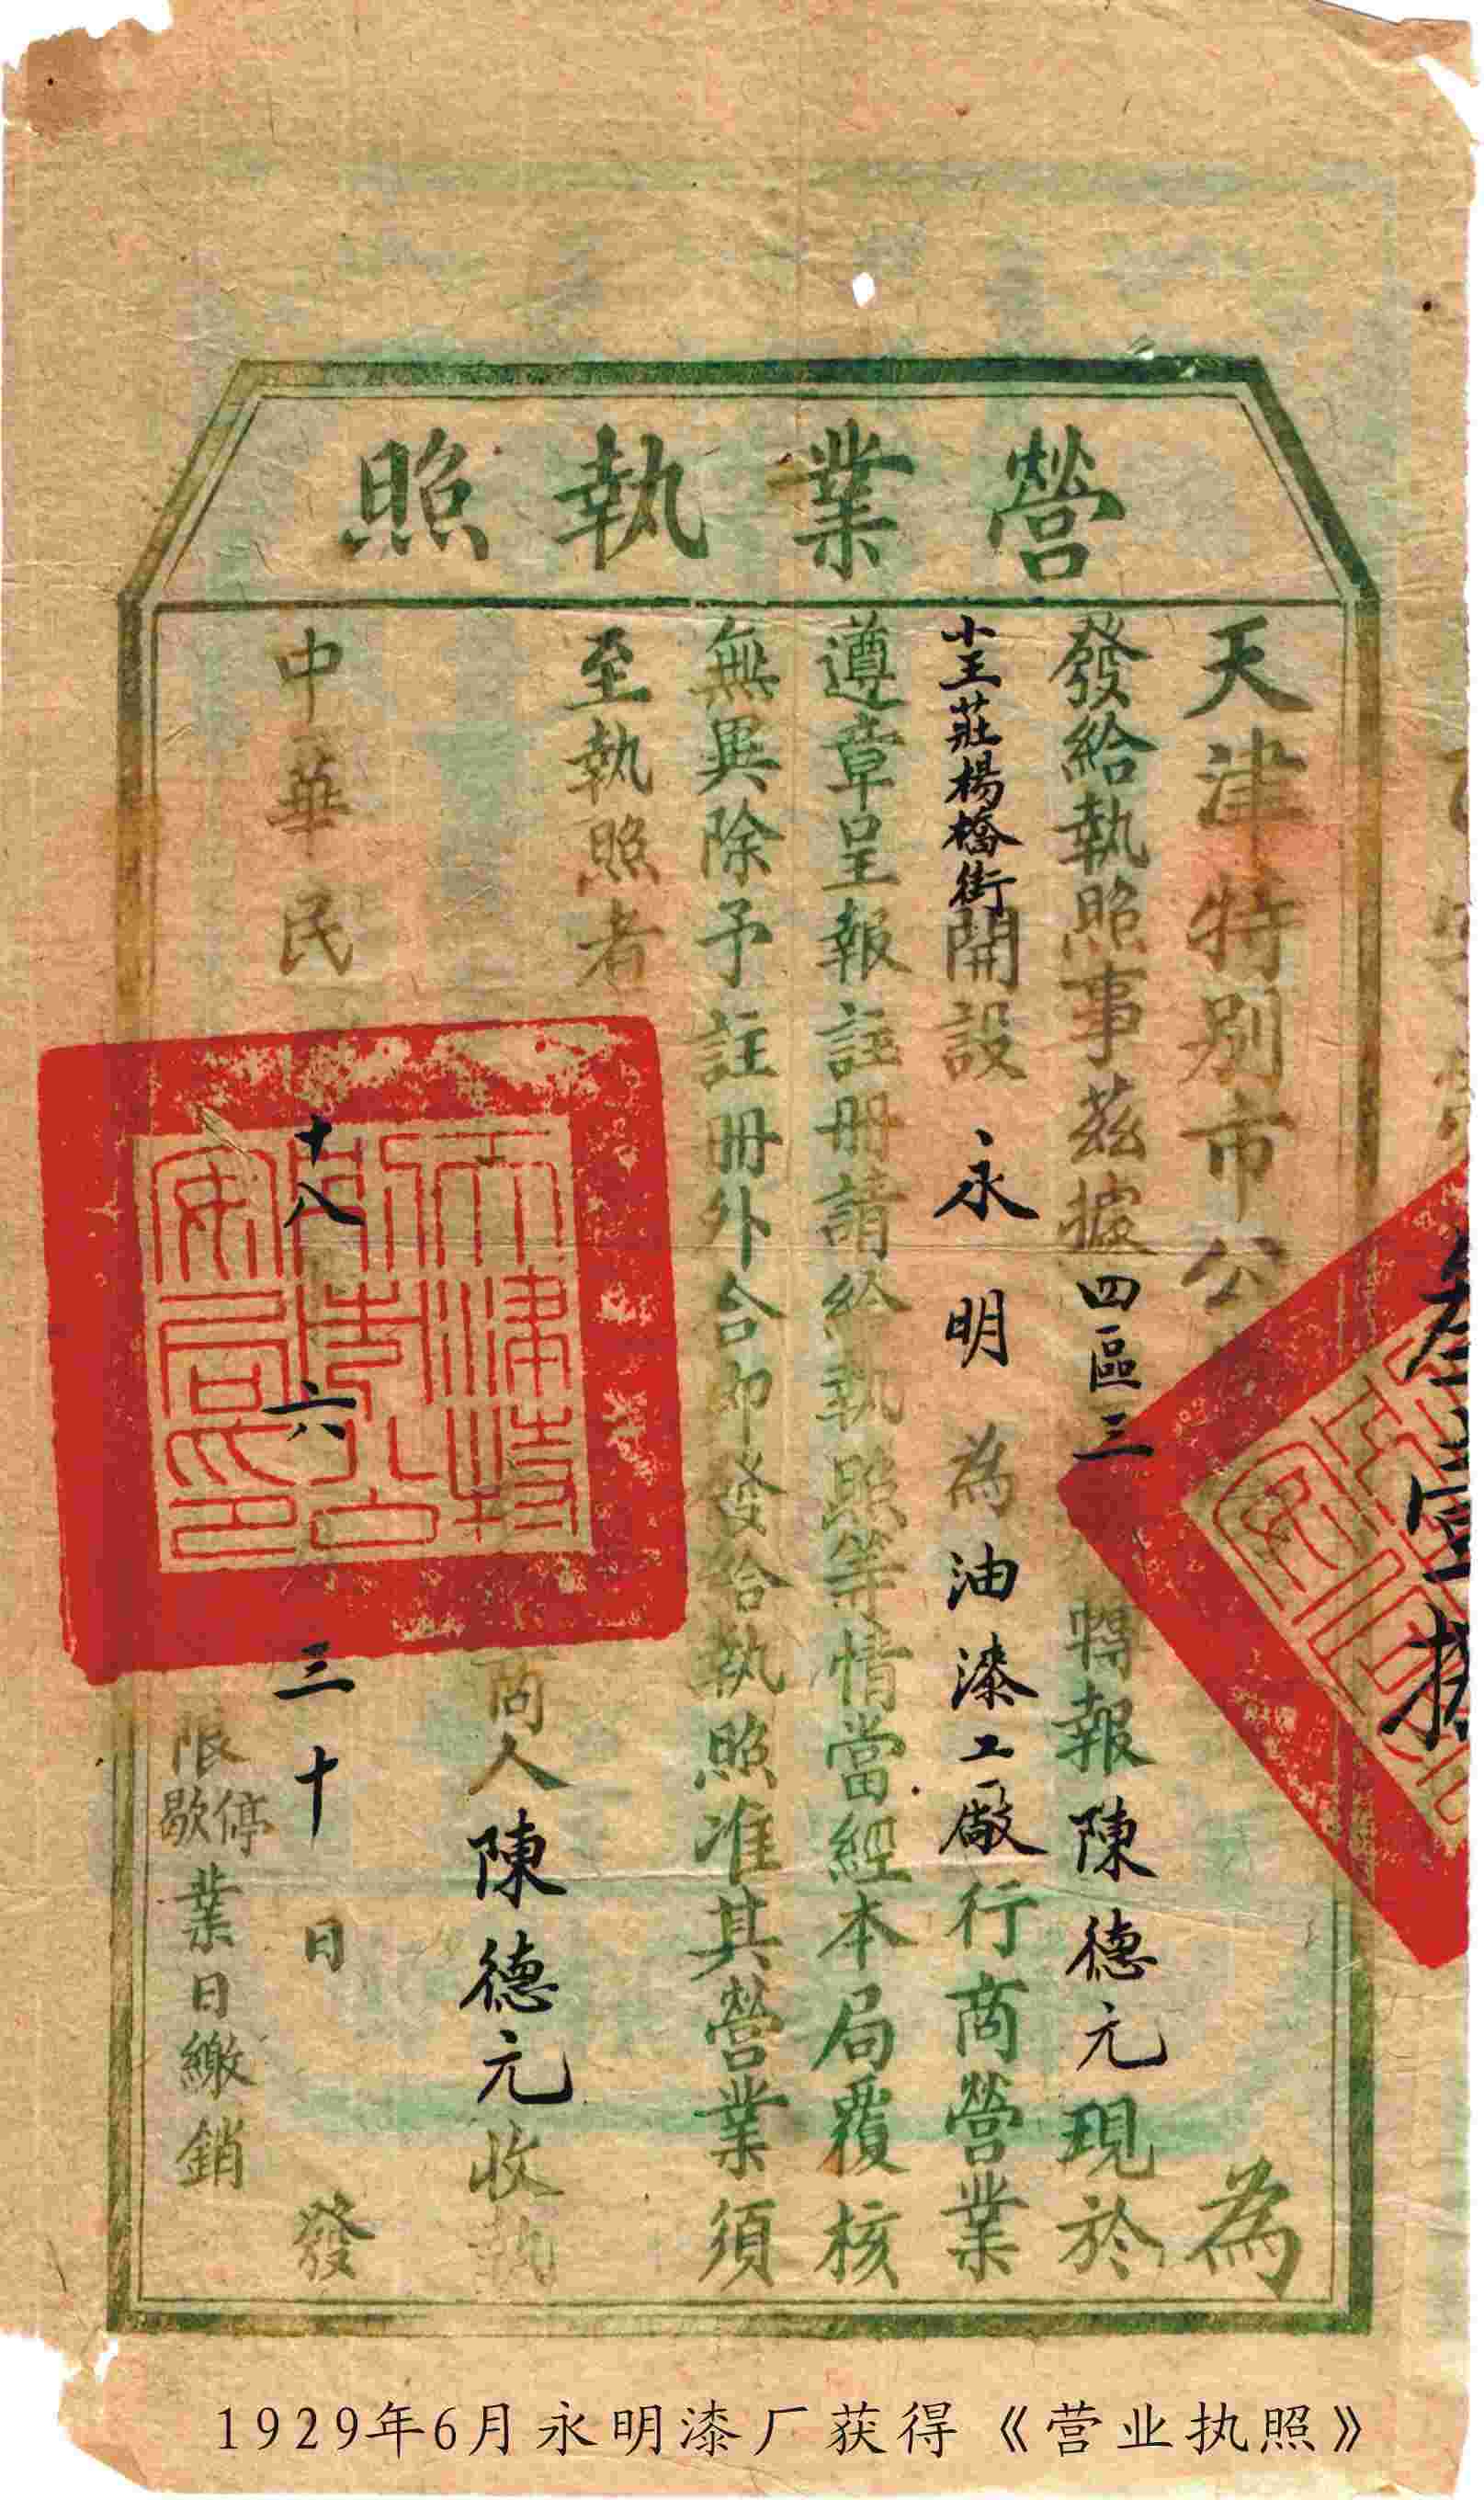 營業執照
天津特別市公為
發給執照事茲據四區三轉報陳德元現於
小王莊楊橋街開設永明為油漆工廠行商營業
遵章呈報註冊請給執照等情當經本局覆核
無異除予註冊外合即發給執照准其營業須
至執照者
商人陳德元收執
中華民十八六三十日發
限停歇業日繳銷
天津特別市公安局印
叁壹拾
1929年6月永明漆厂获得《营业执照》